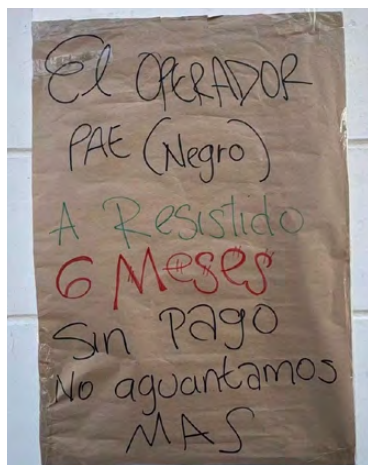 El OPERADOR
PAE (Negro)
A Resistido
6 Meses
Sin Pago
No aguantamos
MAS